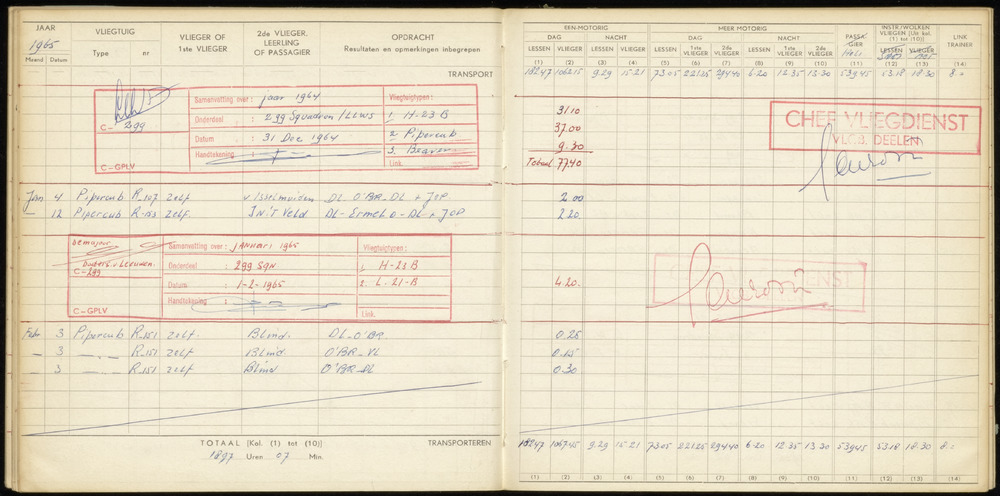 JAAR
1965
Maand Datum
VLIEGTUIG
Type nr
VLIEGER OF
1ste VLIEGER
2de VLIEGER.
LEERLING
OF PASSAGIER
OPDRACHT
Resultaten en opmerkingen inbegrepen
TRANSPORT
C- 299
C-GPLV
Samenvatting over: jaar 1964
Onderdeel : 299 Squadron / LLWS
Datum : 31 Dec 1964
Handtekening :
Vliegtuigtypen:
1. H-23 B
2. Pipercub
3. Beaver
Link.
Jan 4 Pipercub R-107 zelf v. IJsselmuiden DL-O'BR-DL + JOP
— 12 Pipercub R-153 zelf. IN'T Veld DL-Ermelo-DL + JOP
C-299
C-GPLV
Samenvatting over: JANUARI 1965
Onderdeel : 299 SQN
Datum : 1-2-1965
Handtekening :
Vliegtuigtypen:
1. H-23 B
2. L-21-B
Link.
Febr 3 Pipercub R-151 zelf. Blind. DL-O'BR
— 3 —„— R-151 zelf Blind. O'BR-VL
3 R-151 zelf Blind O'BR-DL
TOTAAL [Kol. (1) tot (10)] TRANSPORTEREN
1897 Uren 07 Min.
EEN-MOTORIG
DAG NACHT
LESSEN VLIEGER LESSEN VLIEGER
(1) (2) (3) (4)
MEER MOTORIG
DAG NACHT
LESSEN 1ste VLIEGER 2de VLIEGER LESSEN 1ste VLIEGER 2de VLIEGER
(5) (6) (7) (8) (9) (10)
PASSA-
GIER
(11)
INSTR/WOLKEN
VLIEGEN [Uit kol.
(1) tot (10)]
LESSEN VLIEGER
(12) (13)
LINK
TRAINER
(14)
182.47 1062.15 9.29 15-21 73.05 221.25 294.40 6-20 12.35 13.30 539.45 53.18 18.30
31.10
37.00
9.30
Totaal 77.40
CHEF VLIEGDIENST
VLGB. DEELEN
2.00
2.20
4.20.
0.25
0.15
0.30
182.47 1067.45 9.29 15-21 73.05 221.25 294.40 6-20 12.35 13.30 539.45 53.18 18.30
(1) (2) (3) (4) (5) (6) (7) (8) (9) (10) (11) (12) (13) (14)